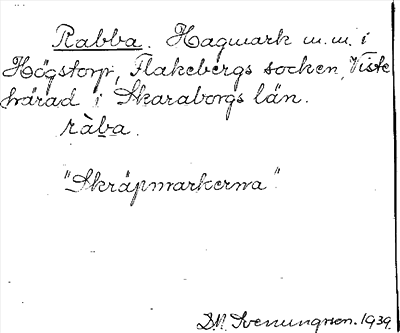 Rabba. Hagmark m.m. i
Högstorp, Flakebergs socken, Viste
härad i Skaraborgs län.
ràba.
"Skräpmarkerna".
D.M. Svenungsson. 1939.